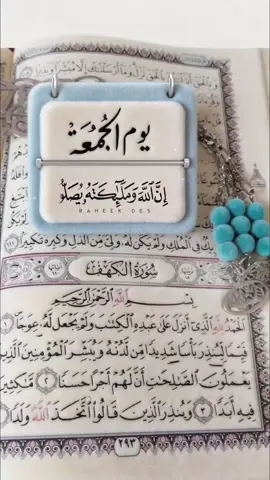 يوم الجمعة
إن الله وملئكته يصلو
RAHEEK DES
فى الملك ولم يكن له ولى من الذل وكبره تكبيرا
سورة الكهف
بسم الله الرحمن الرحيم
الحمد لله الذى أنزل على عبده الكتب ولم يجعل له عوجا ١
قيما لينذر بأسا شديدا من لدنه ويبشر المؤمنين الذين
يعملون الصلحت أن لهم أجرا حسنا ٢ مكثين
فيه أبدا ٣ وينذر الذين قالوا اتخذ الله ولدا
٢٩٣